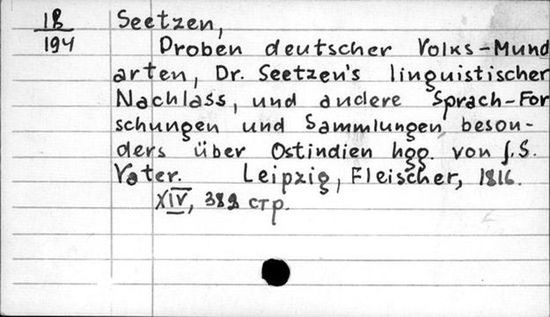 1B
194
Seetzen,
Droben deutscher Volks-Mund
arten, Dr. Seetzen's linguistischer
Nachlass, und andere Sprach-For
schungen und Sammlungen beson-
ders über Ostindien hgg. von J.S.
Vater. Leipzig, Fleischer, 1816.
XIV, 382 стр.